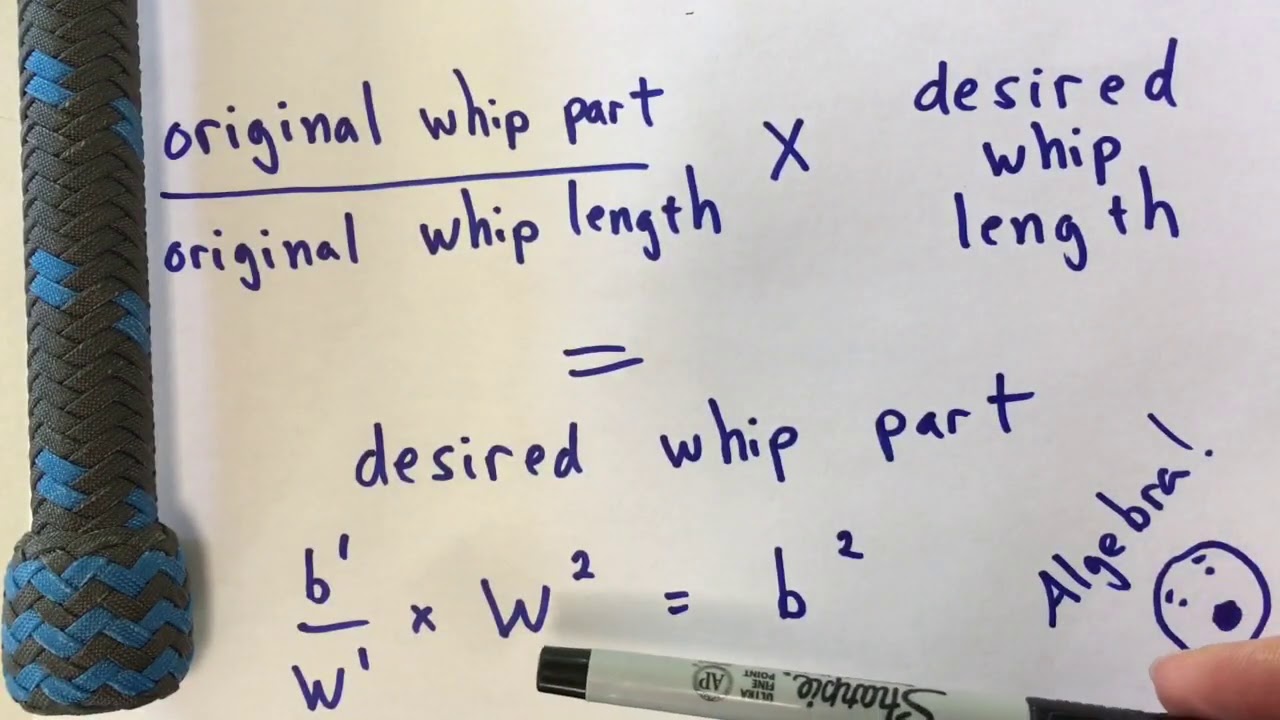 original whip part
original whip length
X
desired
whip
length
=
desired whip part
b¹
w¹
x W² = b²
Algebra!
Sharpie
ULTRA FINE POINT
AP